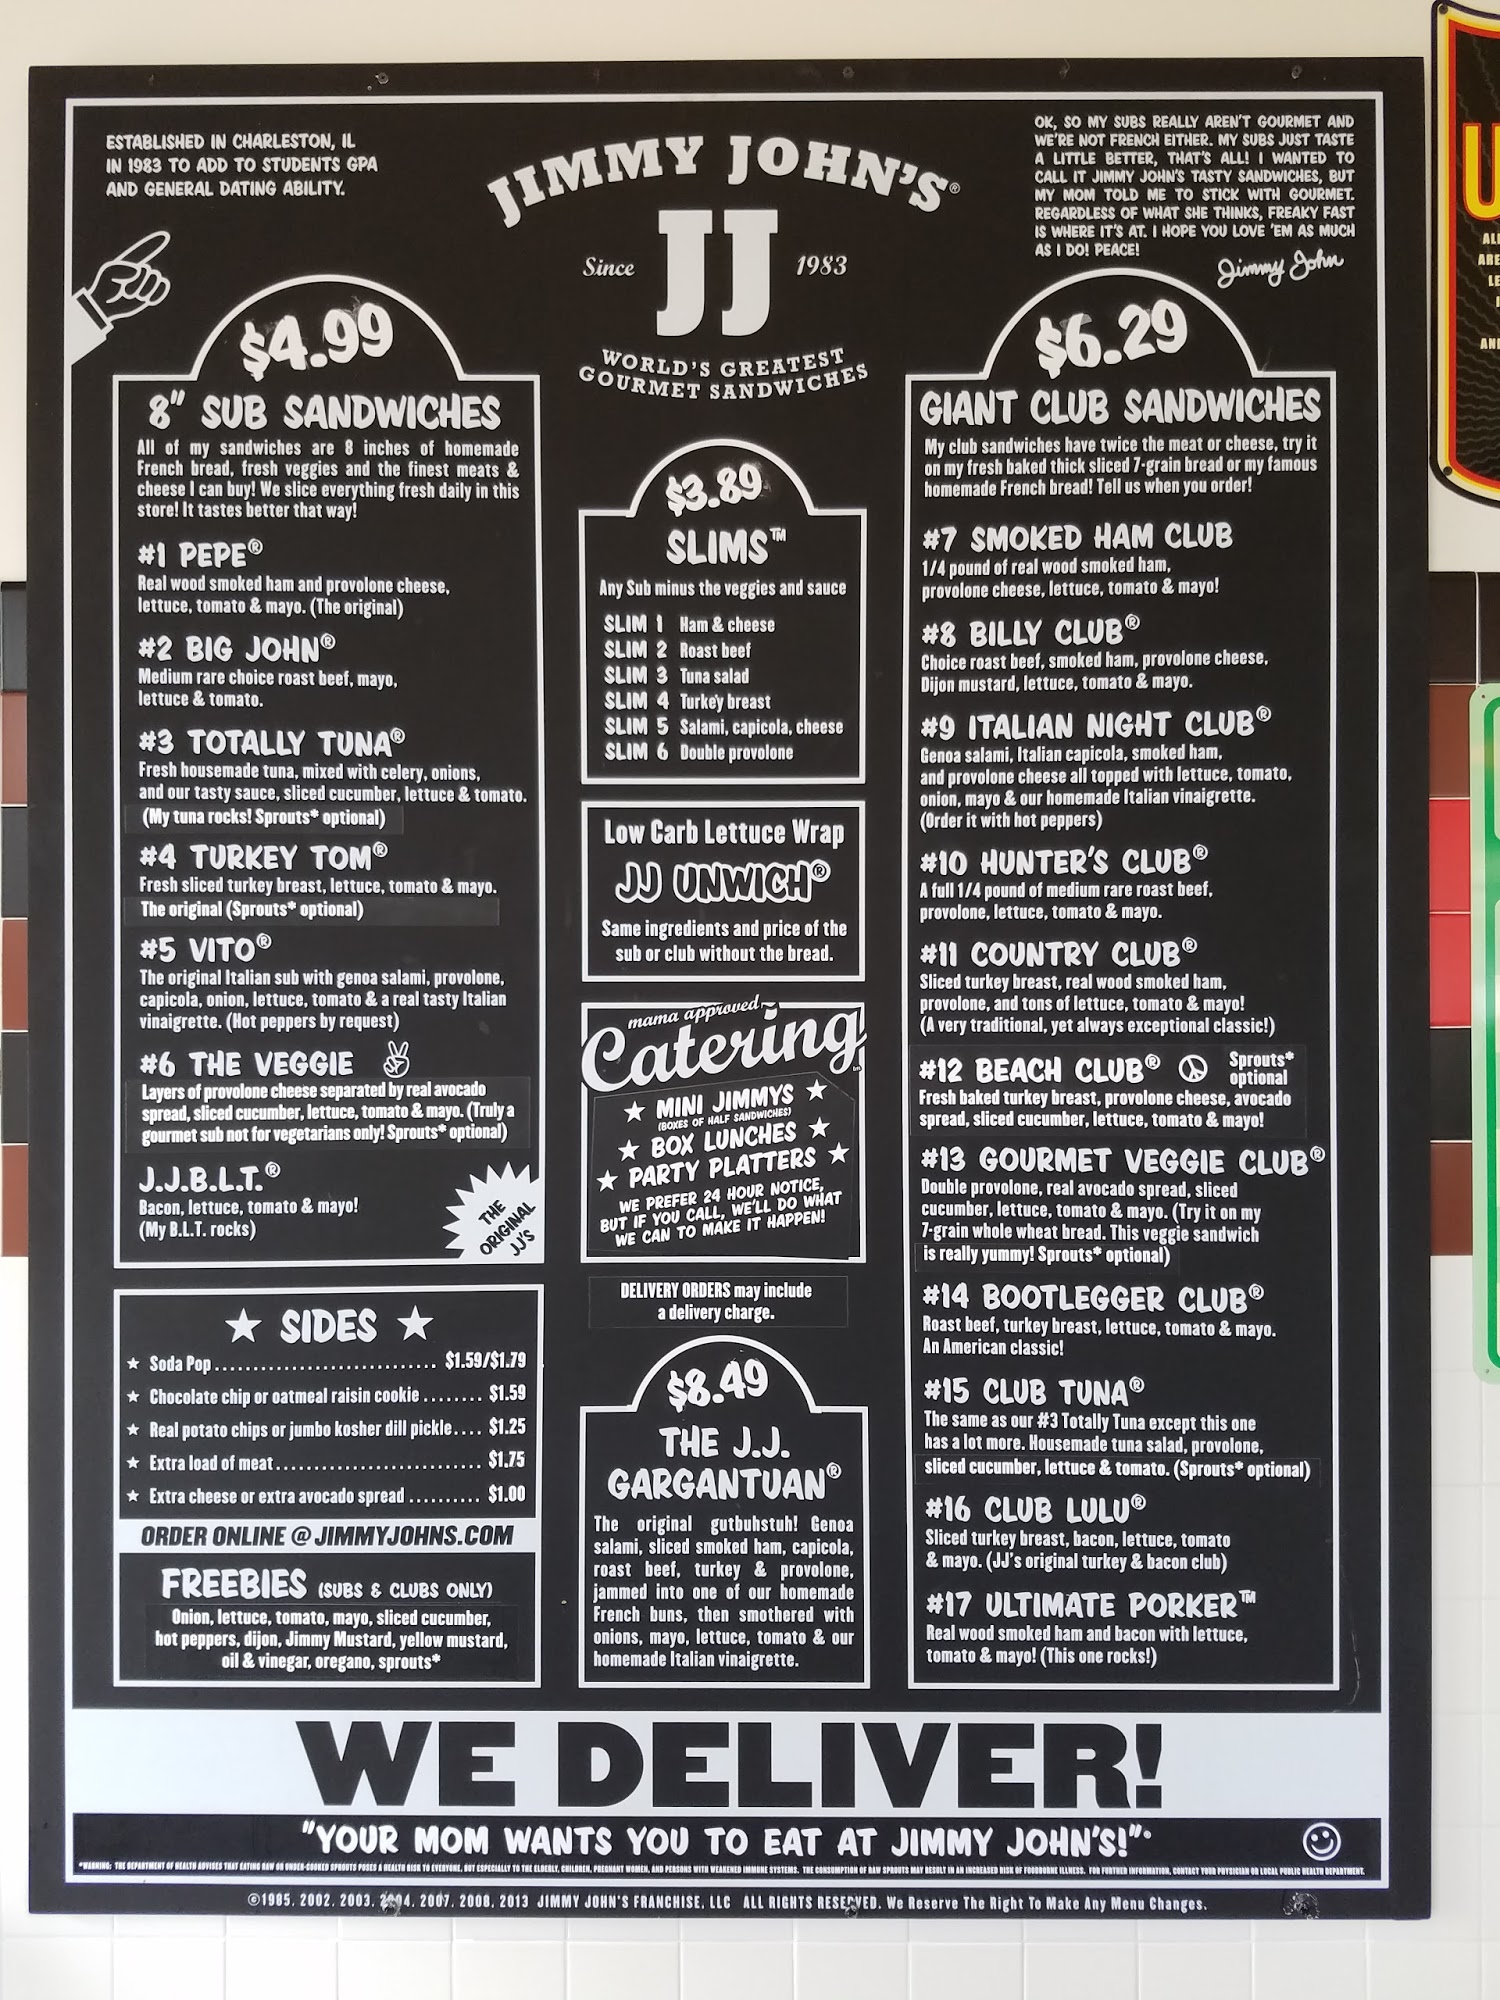 ESTABLISHED IN CHARLESTON, IL
IN 1983 TO ADD TO STUDENTS GPA
AND GENERAL DATING ABILITY.
JIMMY JOHN'S®
JJ
Since 1983
WORLD'S GREATEST
GOURMET SANDWICHES
OK, SO MY SUBS REALLY AREN'T GOURMET AND
WE'RE NOT FRENCH EITHER. MY SUBS JUST TASTE
A LITTLE BETTER, THAT'S ALL! I WANTED TO
CALL IT JIMMY JOHN'S TASTY SANDWICHES, BUT
MY MOM TOLD ME TO STICK WITH GOURMET.
REGARDLESS OF WHAT SHE THINKS, FREAKY FAST
IS WHERE IT'S AT. I HOPE YOU LOVE 'EM AS MUCH
AS I DO! PEACE!
Jimmy John
$4.99
8" SUB SANDWICHES
All of my sandwiches are 8 inches of homemade
French bread, fresh veggies and the finest meats &
cheese I can buy! We slice everything fresh daily in this
store! It tastes better that way!
#1 PEPE®
Real wood smoked ham and provolone cheese,
lettuce, tomato & mayo. (The original)
#2 BIG JOHN®
Medium rare choice roast beef, mayo,
lettuce & tomato.
#3 TOTALLY TUNA®
Fresh housemade tuna, mixed with celery, onions,
and our tasty sauce, sliced cucumber, lettuce & tomato.
(My tuna rocks! Sprouts* optional)
#4 TURKEY TOM®
Fresh sliced turkey breast, lettuce, tomato & mayo.
The original (Sprouts* optional)
#5 VITO®
The original Italian sub with genoa salami, provolone,
capicola, onion, lettuce, tomato & a real tasty Italian
vinaigrette. (Hot peppers by request)
#6 THE VEGGIE
Layers of provolone cheese separated by real avocado
spread, sliced cucumber, lettuce, tomato & mayo. (Truly a
gourmet sub not for vegetarians only! Sprouts* optional)
J.J.B.L.T.®
Bacon, lettuce, tomato & mayo!
(My B.L.T. rocks)
THE
ORIGINAL
JJ'S
★ SIDES ★
★ Soda Pop.............................. $1.59/$1.79
★ Chocolate chip or oatmeal raisin cookie ........ $1.59
★ Real potato chips or jumbo kosher dill pickle.... $1.25
★ Extra load of meat................................ $1.75
★ Extra cheese or extra avocado spread .......... $1.00
ORDER ONLINE @ JIMMYJOHNS.COM
FREEBIES (SUBS & CLUBS ONLY)
Onion, lettuce, tomato, mayo, sliced cucumber,
hot peppers, dijon, Jimmy Mustard, yellow mustard,
oil & vinegar, oregano, sprouts*
$3.89
SLIMS™
Any Sub minus the veggies and sauce
SLIM 1 Ham & cheese
SLIM 2 Roast beef
SLIM 3 Tuna salad
SLIM 4 Turkey breast
SLIM 5 Salami, capicola, cheese
SLIM 6 Double provolone
Low Carb Lettuce Wrap
JJ UNWICH®
Same ingredients and price of the
sub or club without the bread.
mama approved
Catering
★ MINI JIMMYS ★
(BOXES OF HALF SANDWICHES)
★ BOX LUNCHES ★
★ PARTY PLATTERS ★
WE PREFER 24 HOUR NOTICE,
BUT IF YOU CALL, WE'LL DO WHAT
WE CAN TO MAKE IT HAPPEN!
DELIVERY ORDERS may include
a delivery charge.
$8.49
THE J.J.
GARGANTUAN®
The original gutbuhstuh! Genoa
salami, sliced smoked ham, capicola,
roast beef, turkey & provolone,
jammed into one of our homemade
French buns, then smothered with
onions, mayo, lettuce, tomato & our
homemade Italian vinaigrette.
$6.29
GIANT CLUB SANDWICHES
My club sandwiches have twice the meat or cheese, try it
on my fresh baked thick sliced 7-grain bread or my famous
homemade French bread! Tell us when you order!
#7 SMOKED HAM CLUB
1/4 pound of real wood smoked ham,
provolone cheese, lettuce, tomato & mayo!
#8 BILLY CLUB®
Choice roast beef, smoked ham, provolone cheese,
Dijon mustard, lettuce, tomato & mayo.
#9 ITALIAN NIGHT CLUB®
Genoa salami, Italian capicola, smoked ham,
and provolone cheese all topped with lettuce, tomato,
onion, mayo & our homemade Italian vinaigrette.
(Order it with hot peppers)
#10 HUNTER'S CLUB®
A full 1/4 pound of medium rare roast beef,
provolone, lettuce, tomato & mayo.
#11 COUNTRY CLUB®
Sliced turkey breast, real wood smoked ham,
provolone, and tons of lettuce, tomato & mayo!
(A very traditional, yet always exceptional classic!)
#12 BEACH CLUB® Sprouts*
optional
Fresh baked turkey breast, provolone cheese, avocado
spread, sliced cucumber, lettuce, tomato & mayo!
#13 GOURMET VEGGIE CLUB®
Double provolone, real avocado spread, sliced
cucumber, lettuce, tomato & mayo. (Try it on my
7-grain whole wheat bread. This veggie sandwich
is really yummy! Sprouts* optional)
#14 BOOTLEGGER CLUB®
Roast beef, turkey breast, lettuce, tomato & mayo.
An American classic!
#15 CLUB TUNA®
The same as our #3 Totally Tuna except this one
has a lot more. Housemade tuna salad, provolone,
sliced cucumber, lettuce & tomato. (Sprouts* optional)
#16 CLUB LULU®
Sliced turkey breast, bacon, lettuce, tomato
& mayo. (JJ's original turkey & bacon club)
#17 ULTIMATE PORKER™
Real wood smoked ham and bacon with lettuce,
tomato & mayo! (This one rocks!)
WE DELIVER!
"YOUR MOM WANTS YOU TO EAT AT JIMMY JOHN'S!"®
*WARNING: THE DEPARTMENT OF HEALTH ADVISES THAT EATING RAW OR UNDER-COOKED SPROUTS POSES A HEALTH RISK TO EVERYONE, BUT ESPECIALLY TO THE ELDERLY, CHILDREN, PREGNANT WOMEN, AND PERSONS WITH WEAKENED IMMUNE SYSTEMS. THE CONSUMPTION OF RAW SPROUTS MAY RESULT IN AN INCREASED RISK OF FOODBORNE ILLNESS. FOR FURTHER INFORMATION, CONTACT YOUR PHYSICIAN OR LOCAL PUBLIC HEALTH DEPARTMENT.
©1985, 2002, 2003, 2004, 2007, 2008, 2013 JIMMY JOHN'S FRANCHISE, LLC ALL RIGHTS RESERVED. We Reserve The Right To Make Any Menu Changes.